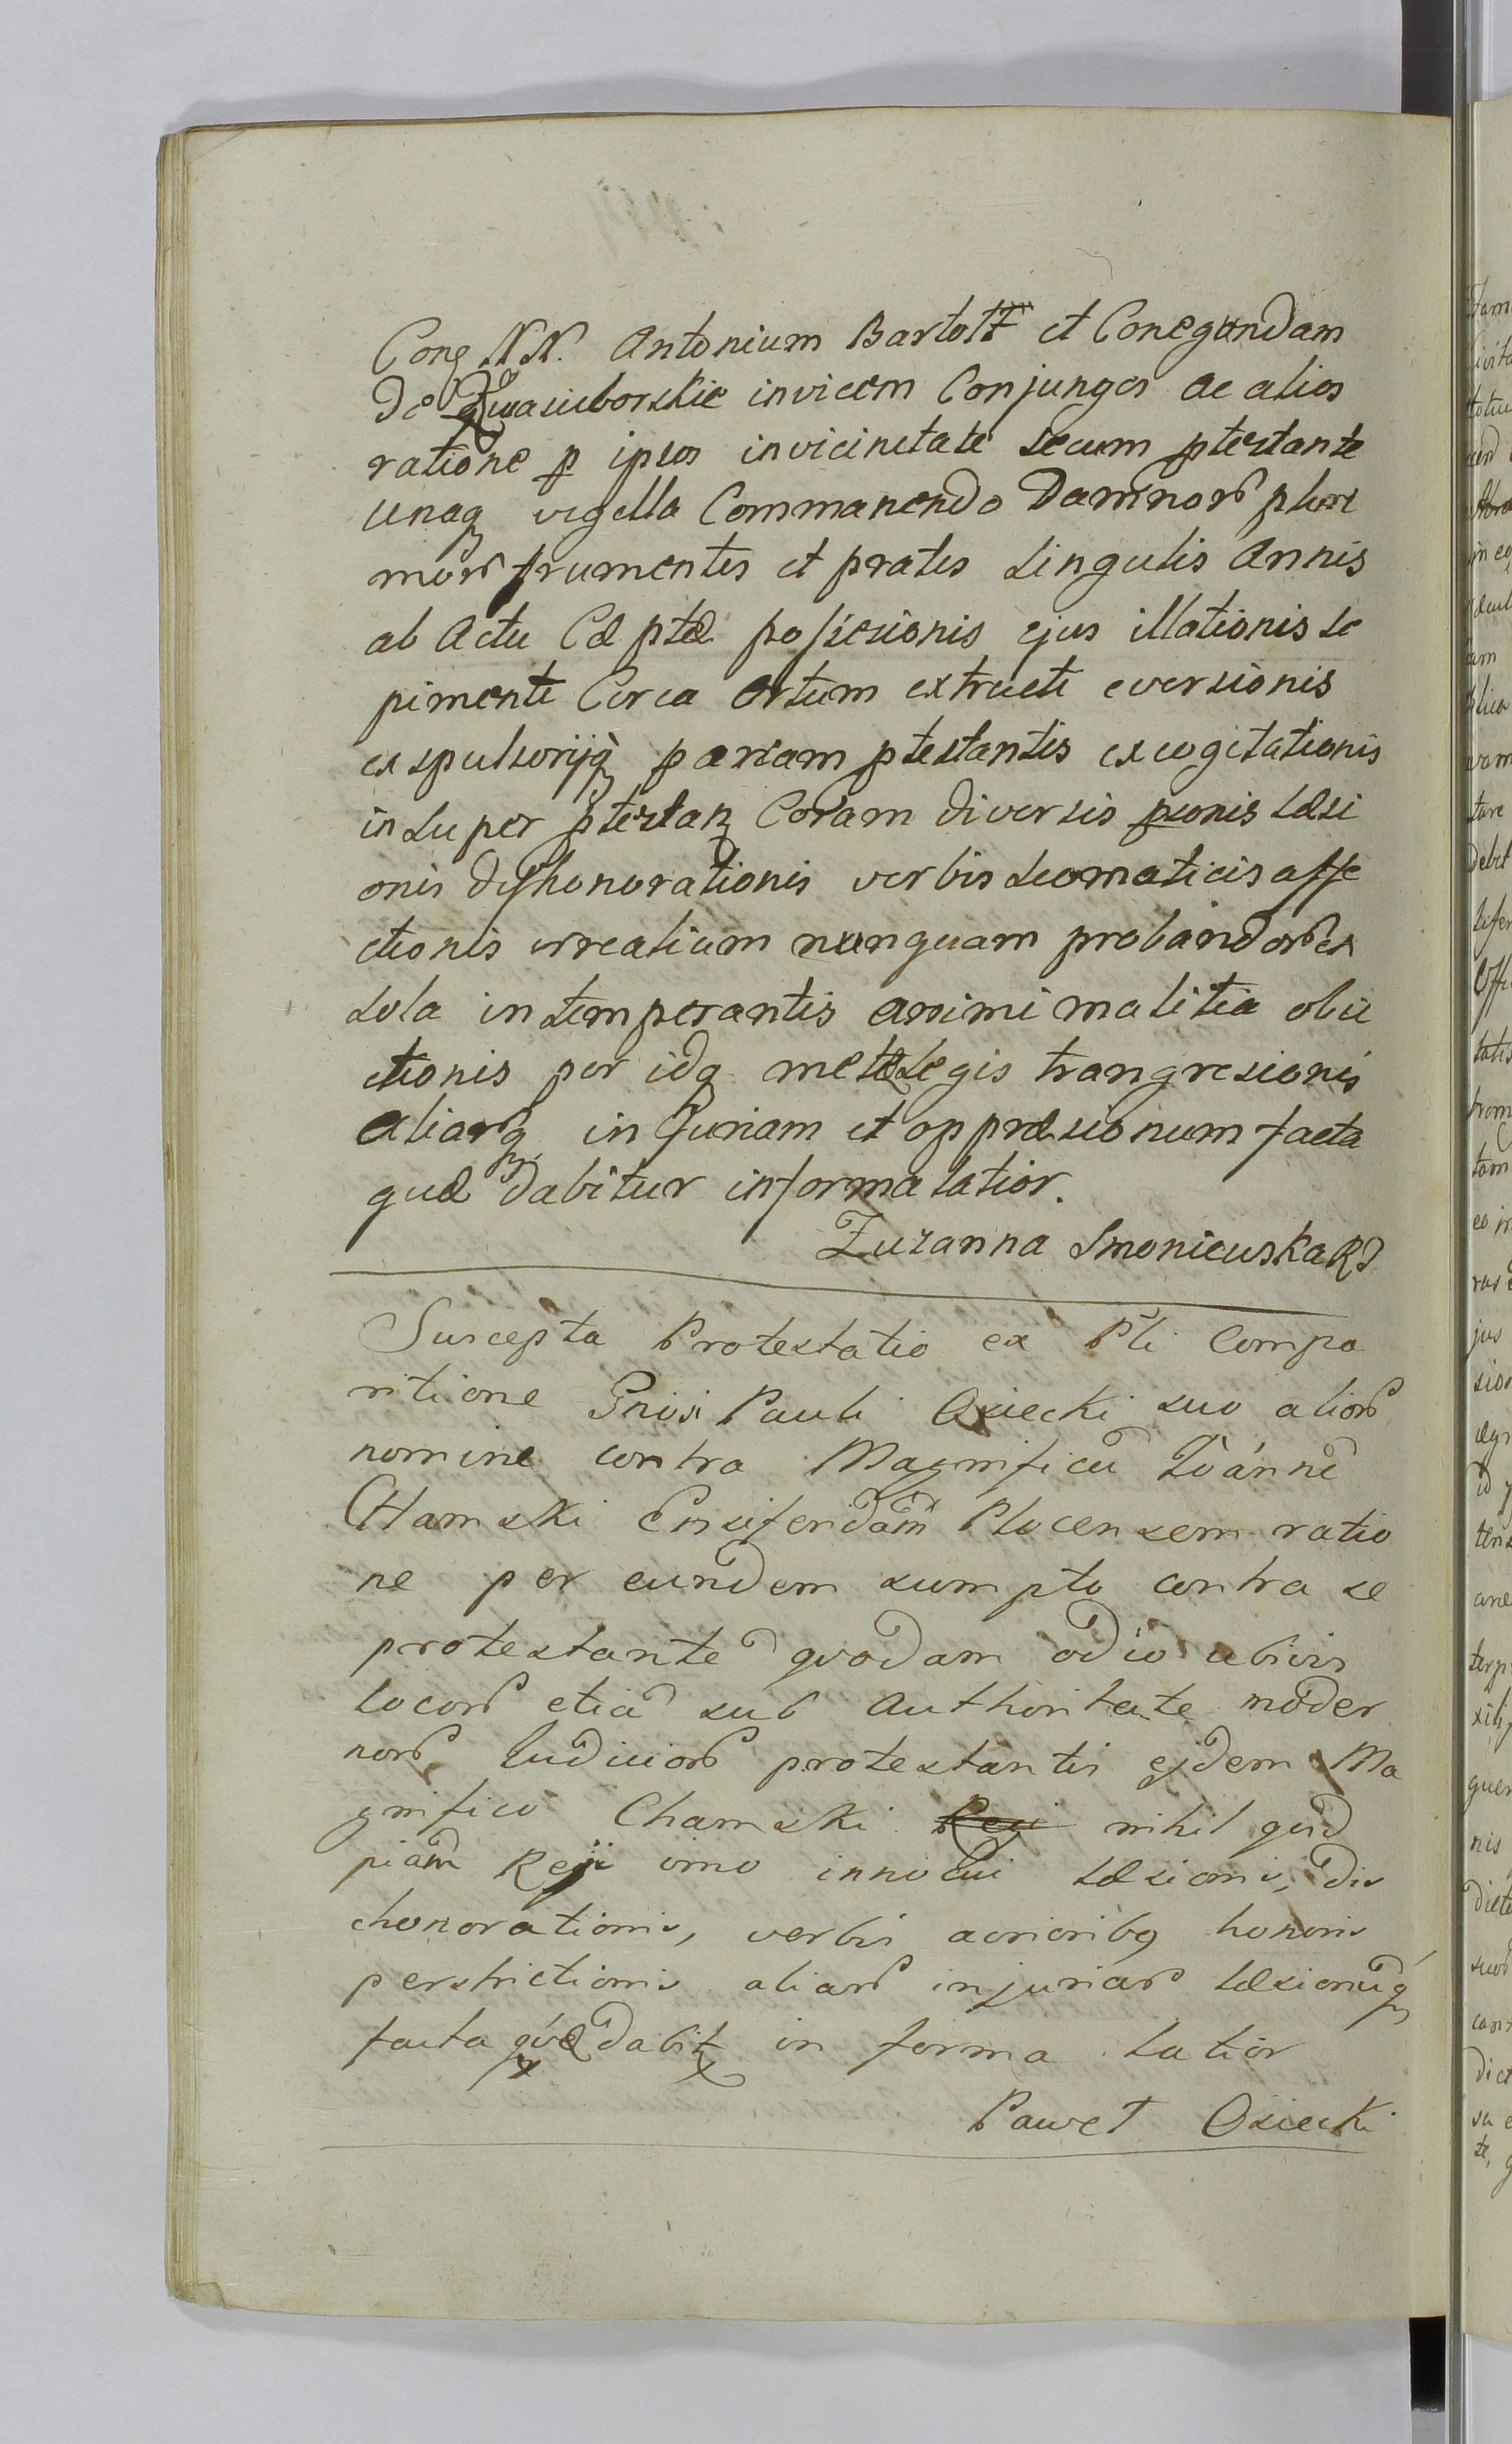 Cong NN. Antonium Bartolt et Conegundam
de Kwasieborskie invicem Conjunges ac alios
ratione p ipsos invicinitate secum ptestante
unaq vigella Commanendo Damnor pluri
mor frumentis et pratis singulis Annis
ab Actu Cæptæ possesionis ejus illationis se
pimenti Circa ortum extructi eversionis
expulsorijq pariam ptestantis excogitationis
insuper ptestan Coram diversis psonis læsi
onis dyshonorationis verbis scomaticis affe
ctionis irrealium nunquam probandor ex
sola intemperantis animi malitia obie
ctionis per idq metæ legis trangresionis
aliarq injuriam et oppræsionum facta
quæ dabitur informa latior.
Zuzanna Smoniewska RS
Suscepta Protestatio ex Pli Compa
ritione Gnosi Pauli Osiecki suo alior
nomine contra Magnificu Ioanne
CHamski Ensiferidam Plocensem ratio
ne per eundem sumpto contra se
protestante quodam odio ubivis
locor etia sub Authoritate moder
nor Iudicior protestantis ejdem Ma
gnifico Chamski Reji nihil quid
piam Reji imo innocui læsionis, dis
chonorationis, verbis acrioribq honoris
perstrictionis aliar injuriar læsionuq
facta quæ dabit in forma latior
Paweł Osiecki